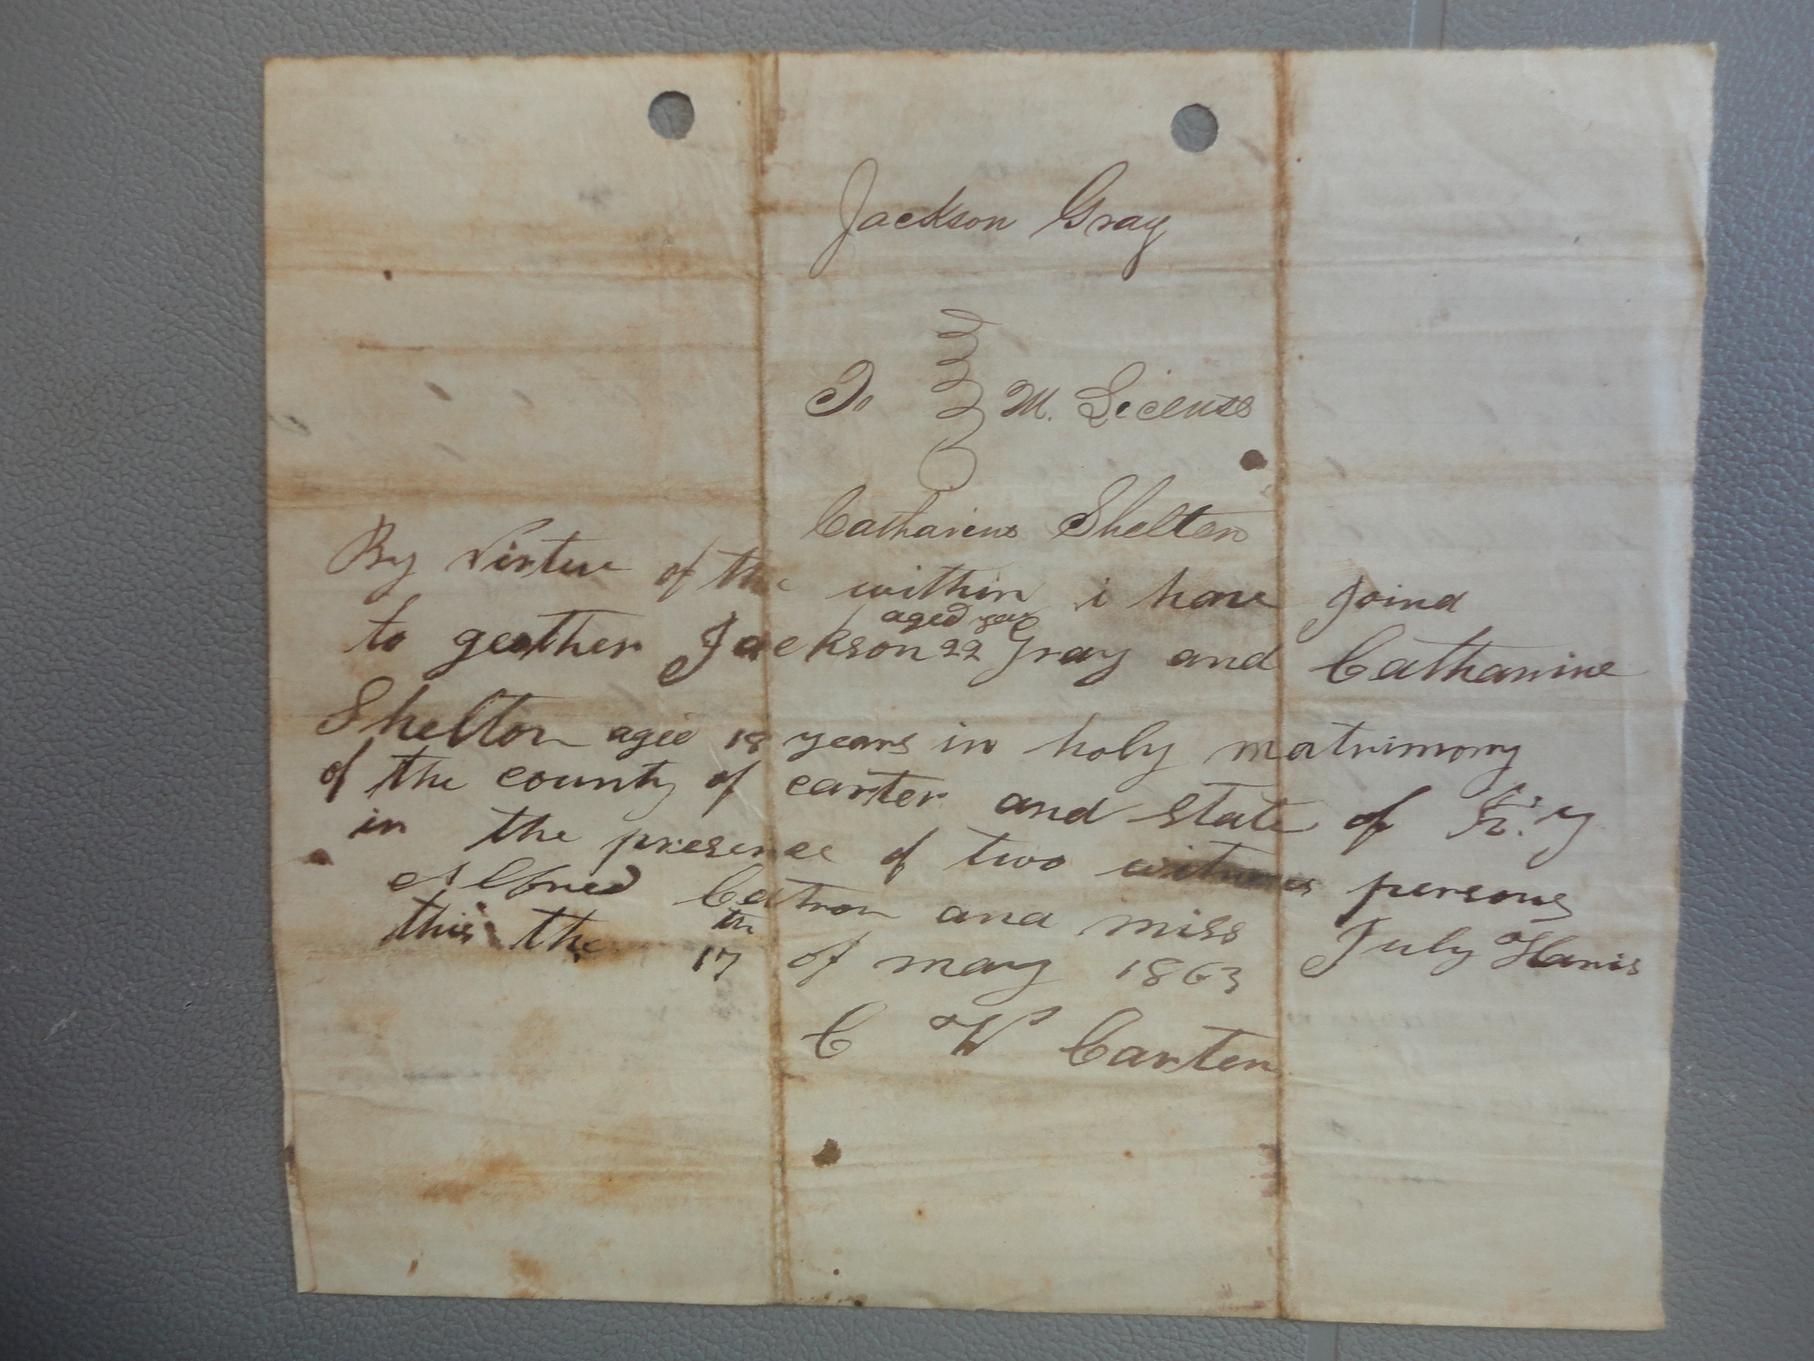 Jackson Gray
To M. License
Catharine Shelton
By Virtue of the within i have Joind
to geather Jackson aged 22 year Gray and Catharine
Shelton aged 18 years in holy matrimony
of the county of carter and state of K.y
in the presence of two witnesses persons
Alfred Catron and miss July Harris
this the 17th of may 1863
C W Carter